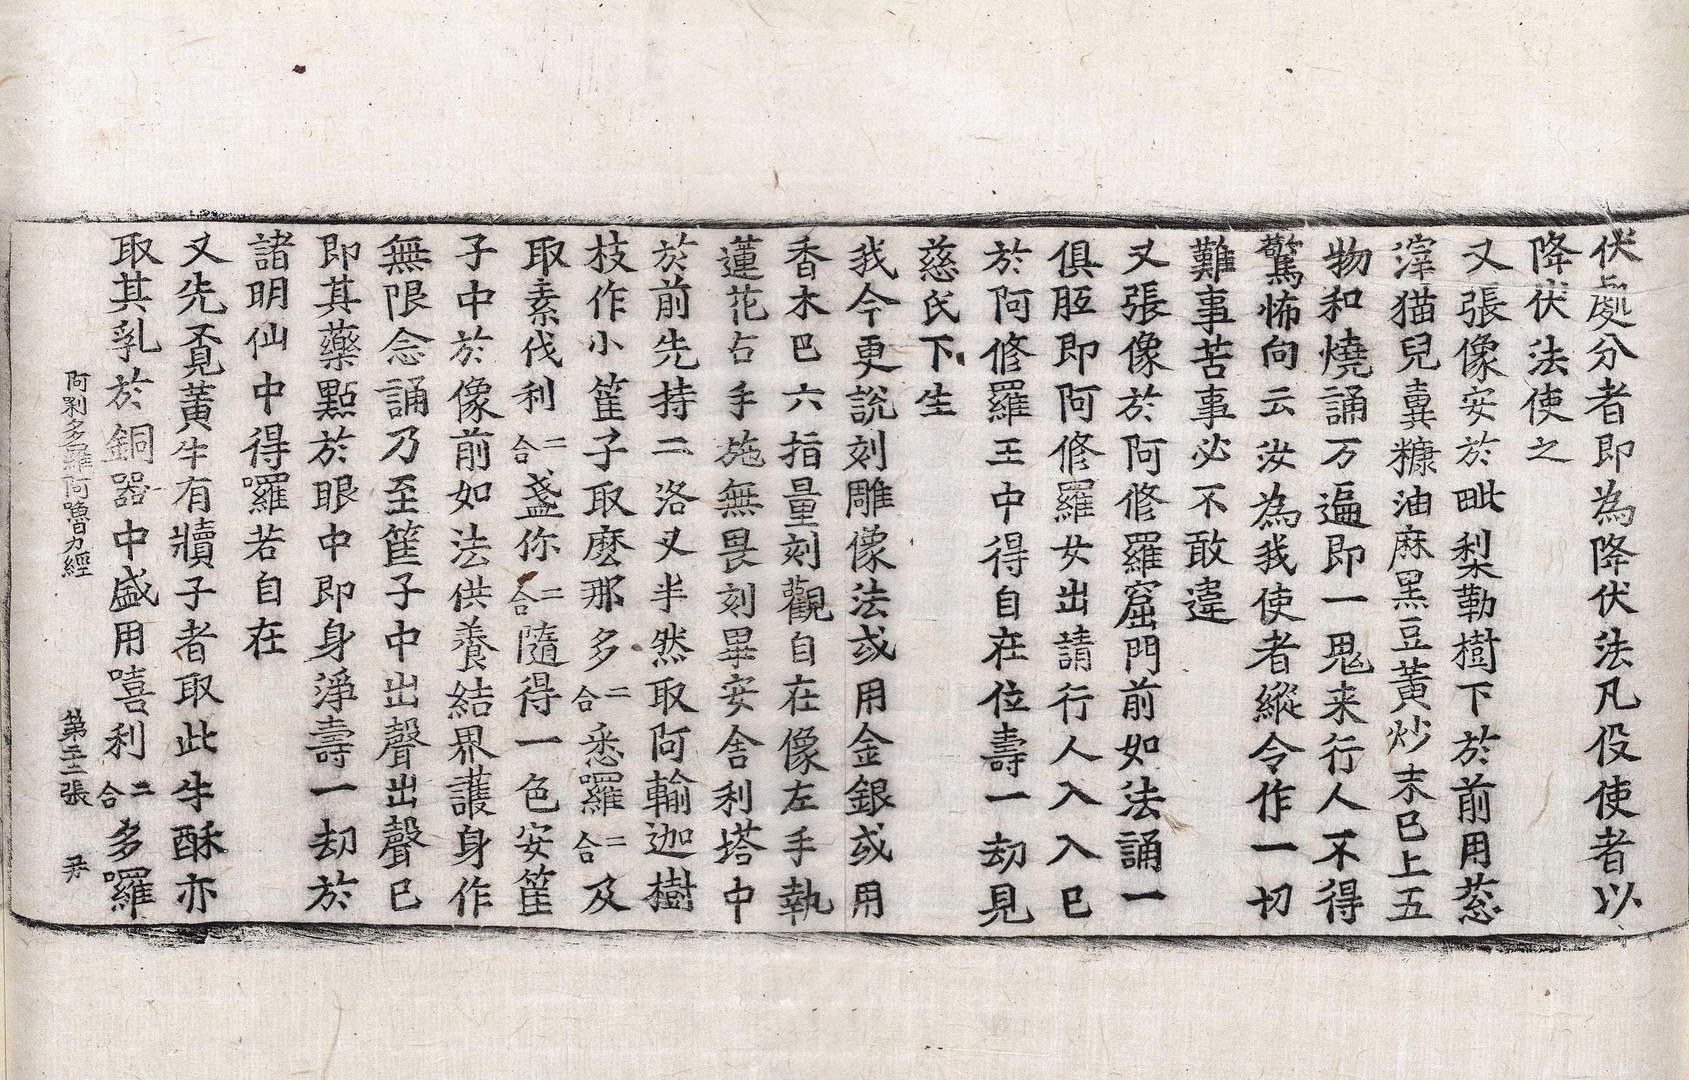 伏處分者即為降伏法凡役使者以
降伏法使之
又張像安於毗梨勒樹下於前用葱
滓猫兒糞糠油麻黑豆黃炒末已上五
物和燒誦万遍即一鬼来行人不得
驚怖向云汝為我使者縱令作一切
難事苦事必不敢違
又張像於阿修羅窟門前如法誦一
俱胝即阿修羅女出請行人入入已
於阿修羅王中得自在位壽一劫見
慈氏下生
我今更說刻雕像法或用金銀或用
香木巴六指量刻觀自在像左手執
蓮花右手施無畏刻畢安舍利塔中
於前先持二洛叉半然取阿輸迦樹
枝作小䈰子取麼那多二合悉囉二合及
取素伐利二合盞你二合隨得一色安䈰
子中於像前如法供養結界護身作
無限念誦乃至䈰子中出聲出聲已
即其藥點於眼中即身淨壽一劫於
諸明仙中得囉若自在
又先覓黃牛有犢子者取此牛酥亦
取其乳於銅器中盛用嘻利二合多囉
阿唎多羅阿嚕力經　第二十二張　尹